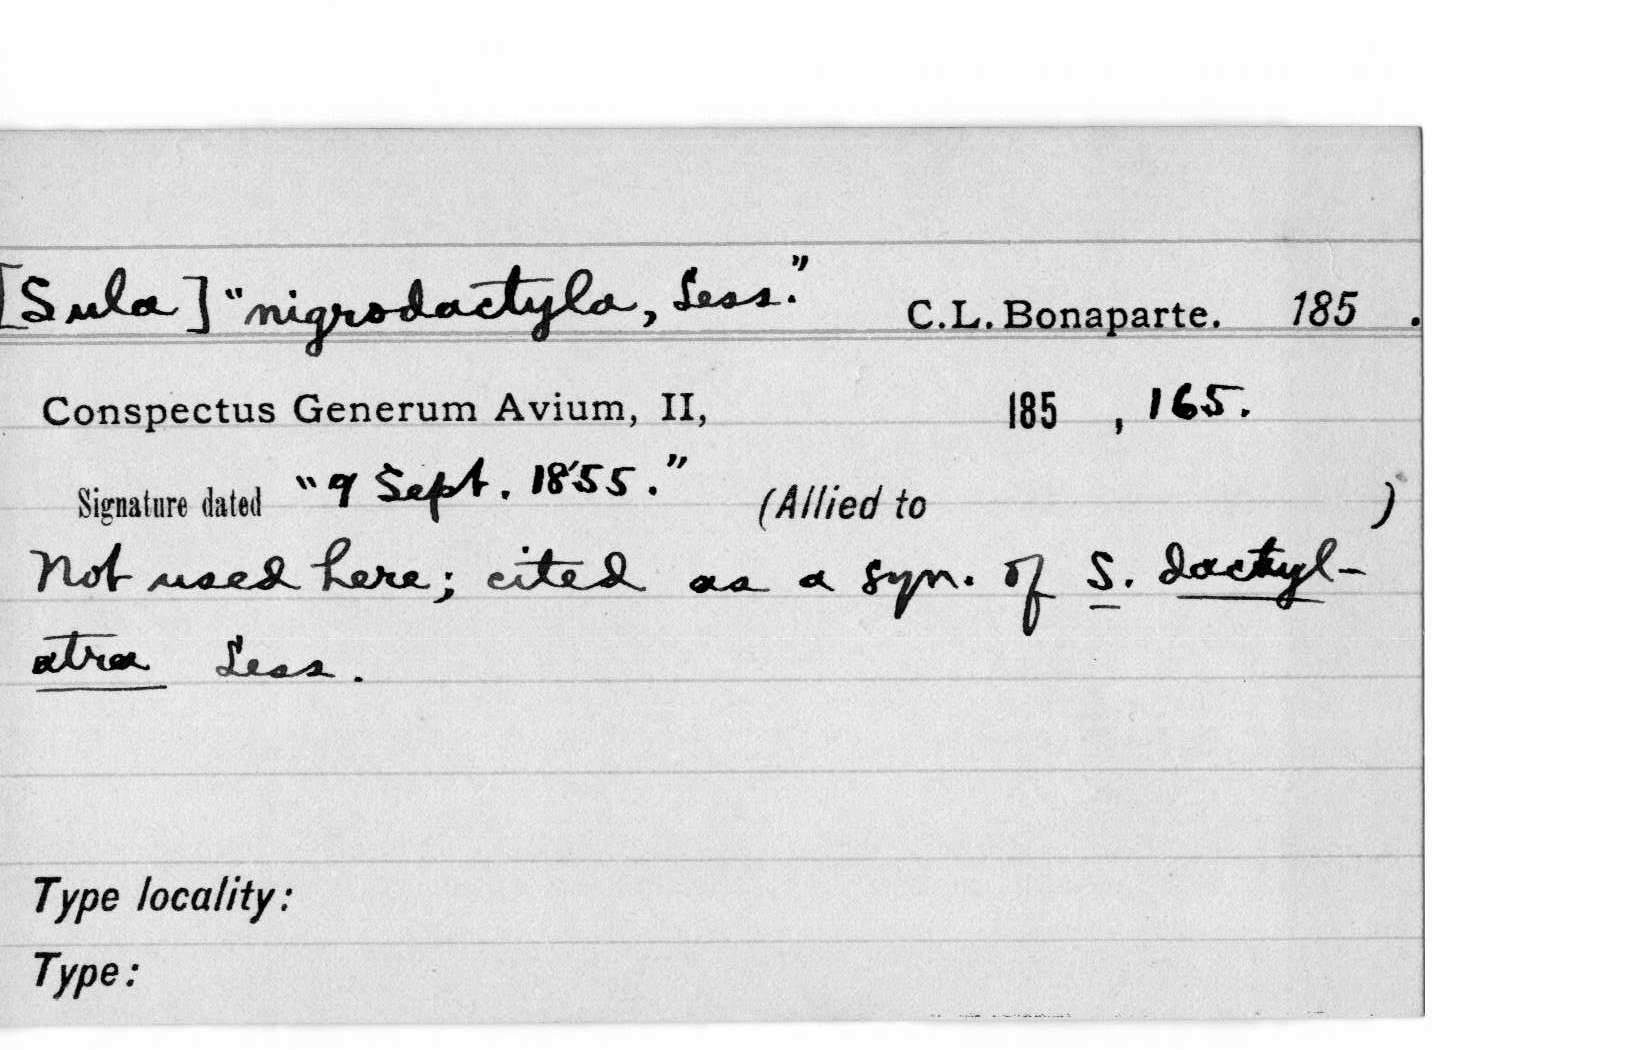 [Sula] "nigrodactyla, Less." C.L. Bonaparte. 185 .
Conspectus Generum Avium, II, 185 , 165.
Signature dated "9 Sept. 1855." (Allied to )
Not used here; cited as a syn. of S. dactyl-
atra Less.
Type locality:
Type: